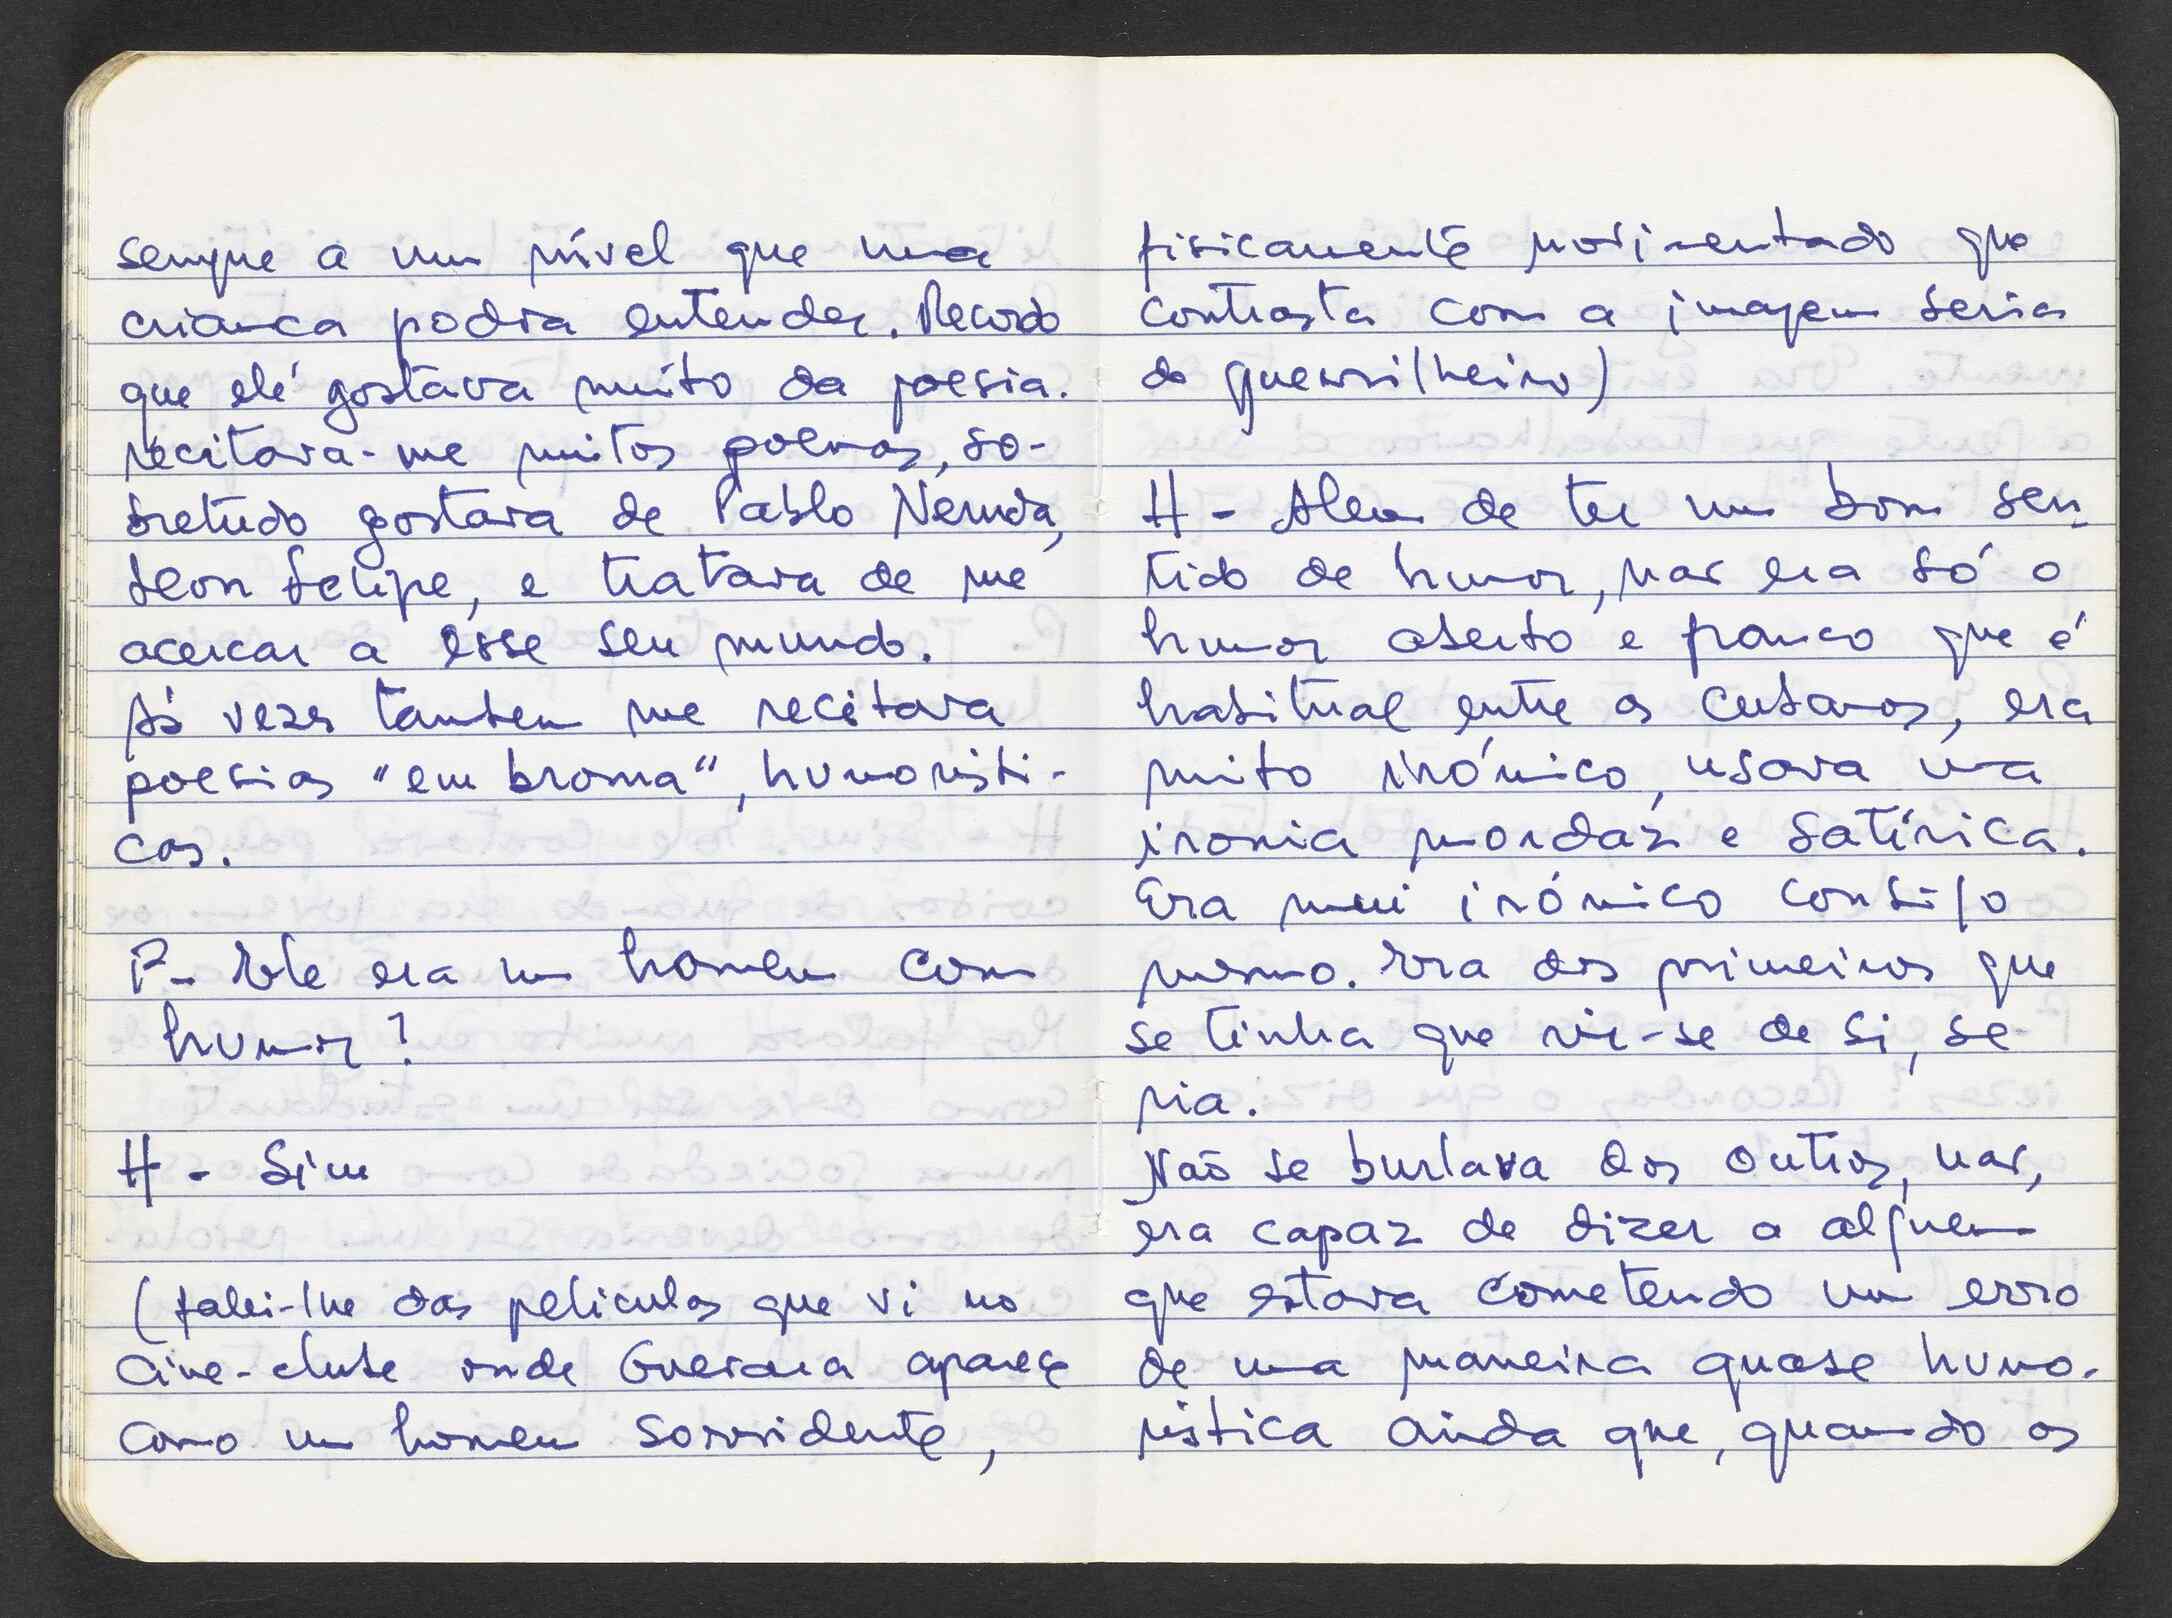 sempre a um nível que uma
criança podia entender. Recordo
que ele gostava muito da poesia.
recitava-me muitos poemas, so-
bretudo gostava de Pablo Neruda,
Leon Felipe, e tratava de me
acercar a esse seu mundo.
Às vezes tambem me recitava
poesias "em broma", humoristi-
cas.
P- Ele era um homem com
humor?
H - Sim
(falei-lhe das peliculas que vi no
Cine-clube onde Guevara aparece
como um homem sorridente,
fisicamente movimentado que
contrasta com a imagem seria
do guerrilheiro)
H - Alem de ter um bom sen-
tido de humor, mas era só o
humor aberto e franco que é
habitual entre os cubanos, era
muito irónico, usava uma
ironia mordaz e satírica.
Era mui irónico consigo
mesmo. Era dos primeiros que
se tinha que rir-se de si, se
ria.
Não se burlava dos outros, mas,
era capaz de dizer a alguem
que estava cometendo um erro
de uma maneira quase humo-
ristica ainda que, quando os